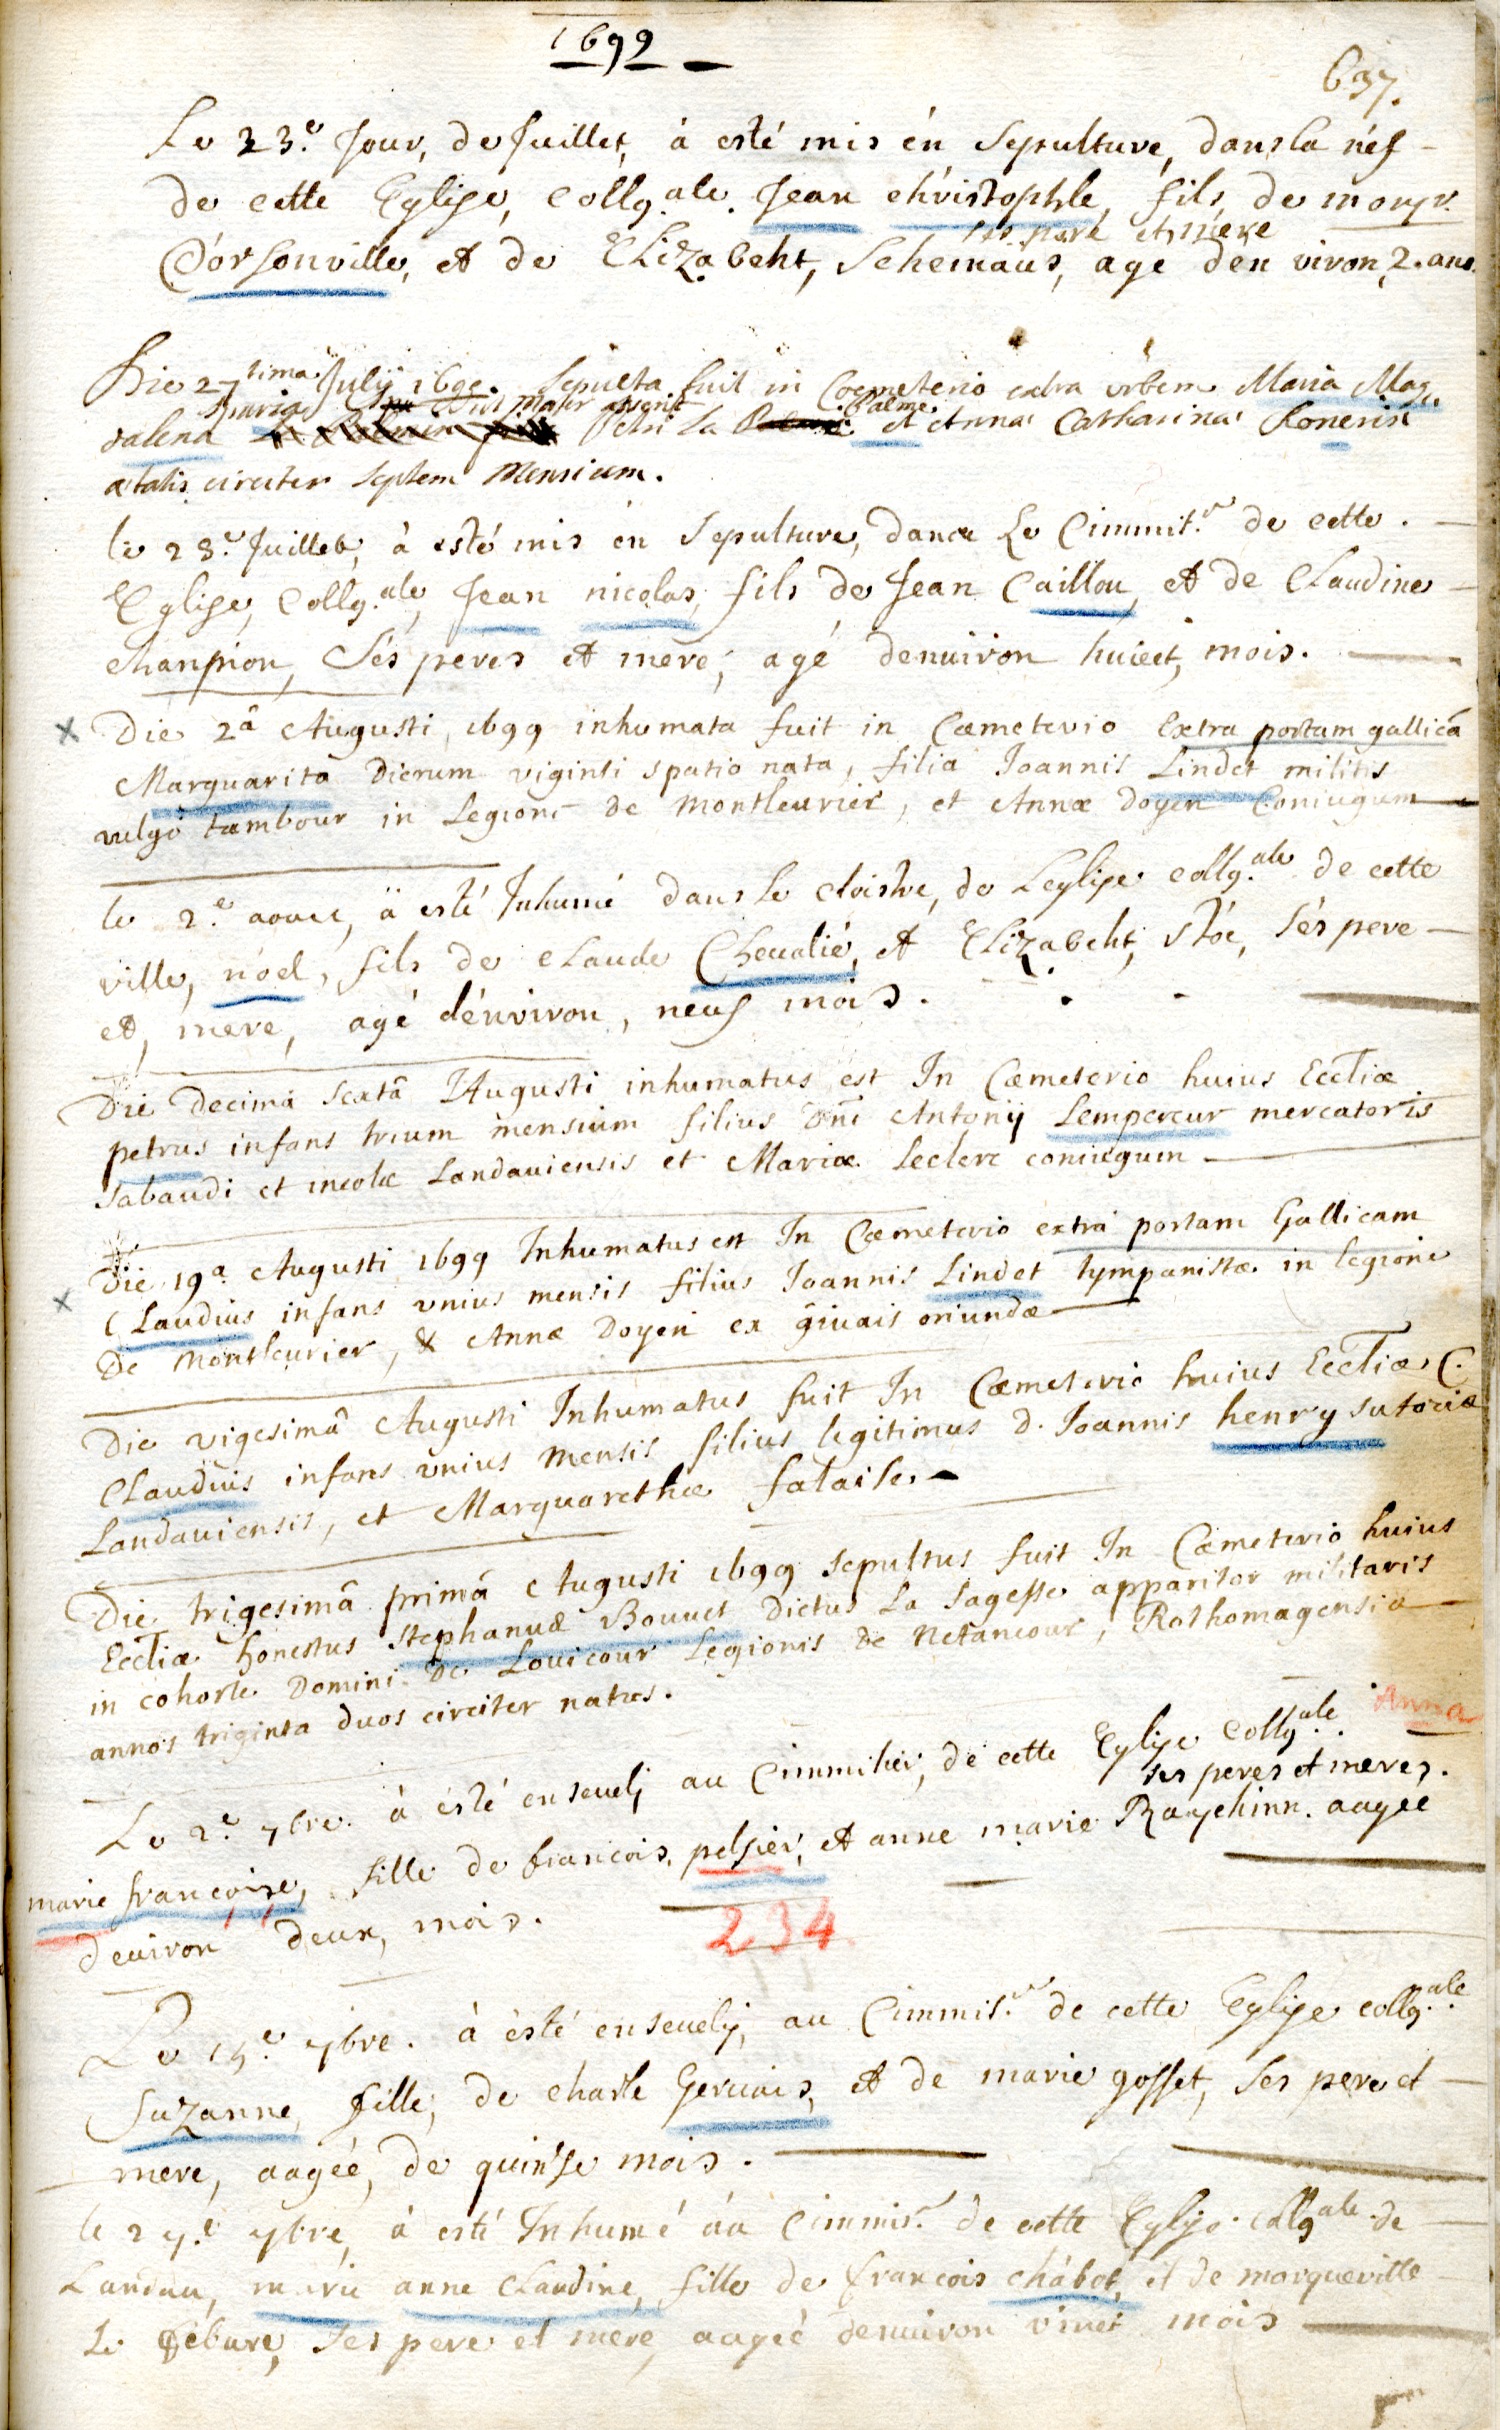 1699
637.
Le 23.e Jour, de Juillet, à esté mis én Sepulture, dans la néf
de cette Eglise, Collg.ale. Jean chrístophle, fils, de monsr.
D'orsonville, et de Elizabeht, Schemaüs, age d'en viron, 2. ans.
ses peré et mere
Die 27tima Julij 1699. Sepulta fuit in Coemeterio extra urbem Maria Mag
dalena spuria ut mater asserit Petri La Palme et Anna Catharina Ronerin
ætatis circiter septem Mensium.
le 28.e Juillet, à esté mis én Sepulture, dance Le Cimmit.re de cette.
Eglise, Collg.ale, Jean nicolas, fils de Jean Caillou, et de Claudine
chanpion, Sés peres et mere, agé denuiron huicet, mois.
x Die 2â Augusti, 1699 inhumata fuit in Cæmeterio Extra portam gallicã
Marguarita Dierum viginti spatio nata, filia Joannis Lindet militis
vulgò tambour in Legione De Montleurier, et Annæ Doyen Coniugum
le 2.e aoust, ä esté Inhumé dans le cloistre, de Leglise collg.ale de cette
ville, nöel, fils de claude Cheualié, et Elizabeht, stoc, sés pere
et, mere, agé dénviron, neuf mois.
Die Decimâ Sextâ Augusti inhumatus est In Cæmeterio huius Eccliæ
petrus infans trium mensium filius Dni Antonij Lempereur mercatoris
Sabaudi et incolæ Landauiensis et Mariæ Leclerc coniugum
x Die 19a. Augusti 1699 Inhumatus est In Cæmeterio extrà portam Gallicam
Claudius infans vnius mensis filius Joannis Lindet tympanistæ in legione
De Montleurier, & Annæ Doyen ex giuais oriundæ
Die vigesimâ Augusti Inhumatus fuit In Cæmeterio huius Eccliæ C.
Claudius infans vnius Mensis filius legitimus D. Joannis henry sutoriæ
Landauiensis, et Marguarethæ falaise.
Die trigesimâ primâ Augusti 1699 sepultus fuit In Cæmeterio huius
Eccliæ honestus Stephanus Bouuet Dictus La Sagesse apparitor militaris
in cohorte Domini De Louicour Legionis De Netancour, Rothomagensis
annos triginta duos circiter natus.
Anna
Le 2.e 7bre. à esté enseuelj au Cimmitier, de cette Eglise Collg.ale.
ses peres et meres.
marie francoise, fille de francois, pelsier, et anne marie Raychinn. aagée
deuiron deux, mois.
234
Le 15.e 7bre. à èsté enseuelij, au Cimmis.re de cette Eglise collg.ale
Suzanne, fille, de charle Geruais, et de marie gosset, Ses pere et
mere, aagéé, de quinse mois.
le 27.e 7bre, à esté Inhumé áu Cimmis.re de cette Eglise. collg.ale. de
Landau, marie anne claudine, fille de francois chábot, et de margueritte
Le febure, Ses pere et mere, aagéé denuiron vinct mois